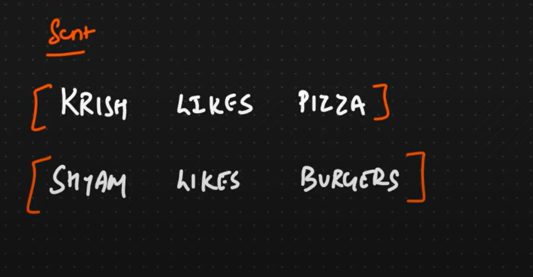 Sent
[KRISH LIKES PIZZA]
[SHYAM LIKES BURGERS]